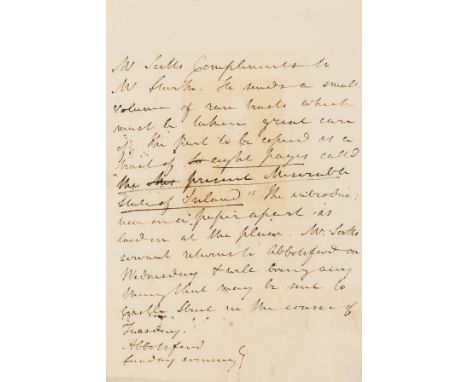 Mr Scotts Compliments to
Mr Sturk. He sends a small
volume of rare tracts which
must be taken great care
of. The part to be copied is a
tract of eight pages called
"the present Miserable
State of Ireland" The introduc:
tion on a paper apart is
laid in at the place. Mr Scotts
servant returns to Abbotsford on
Wednesday & will bring any
thing that may be sent to
Castle Street in the course of
Tuesday.
Abbotsford
Sunday evening